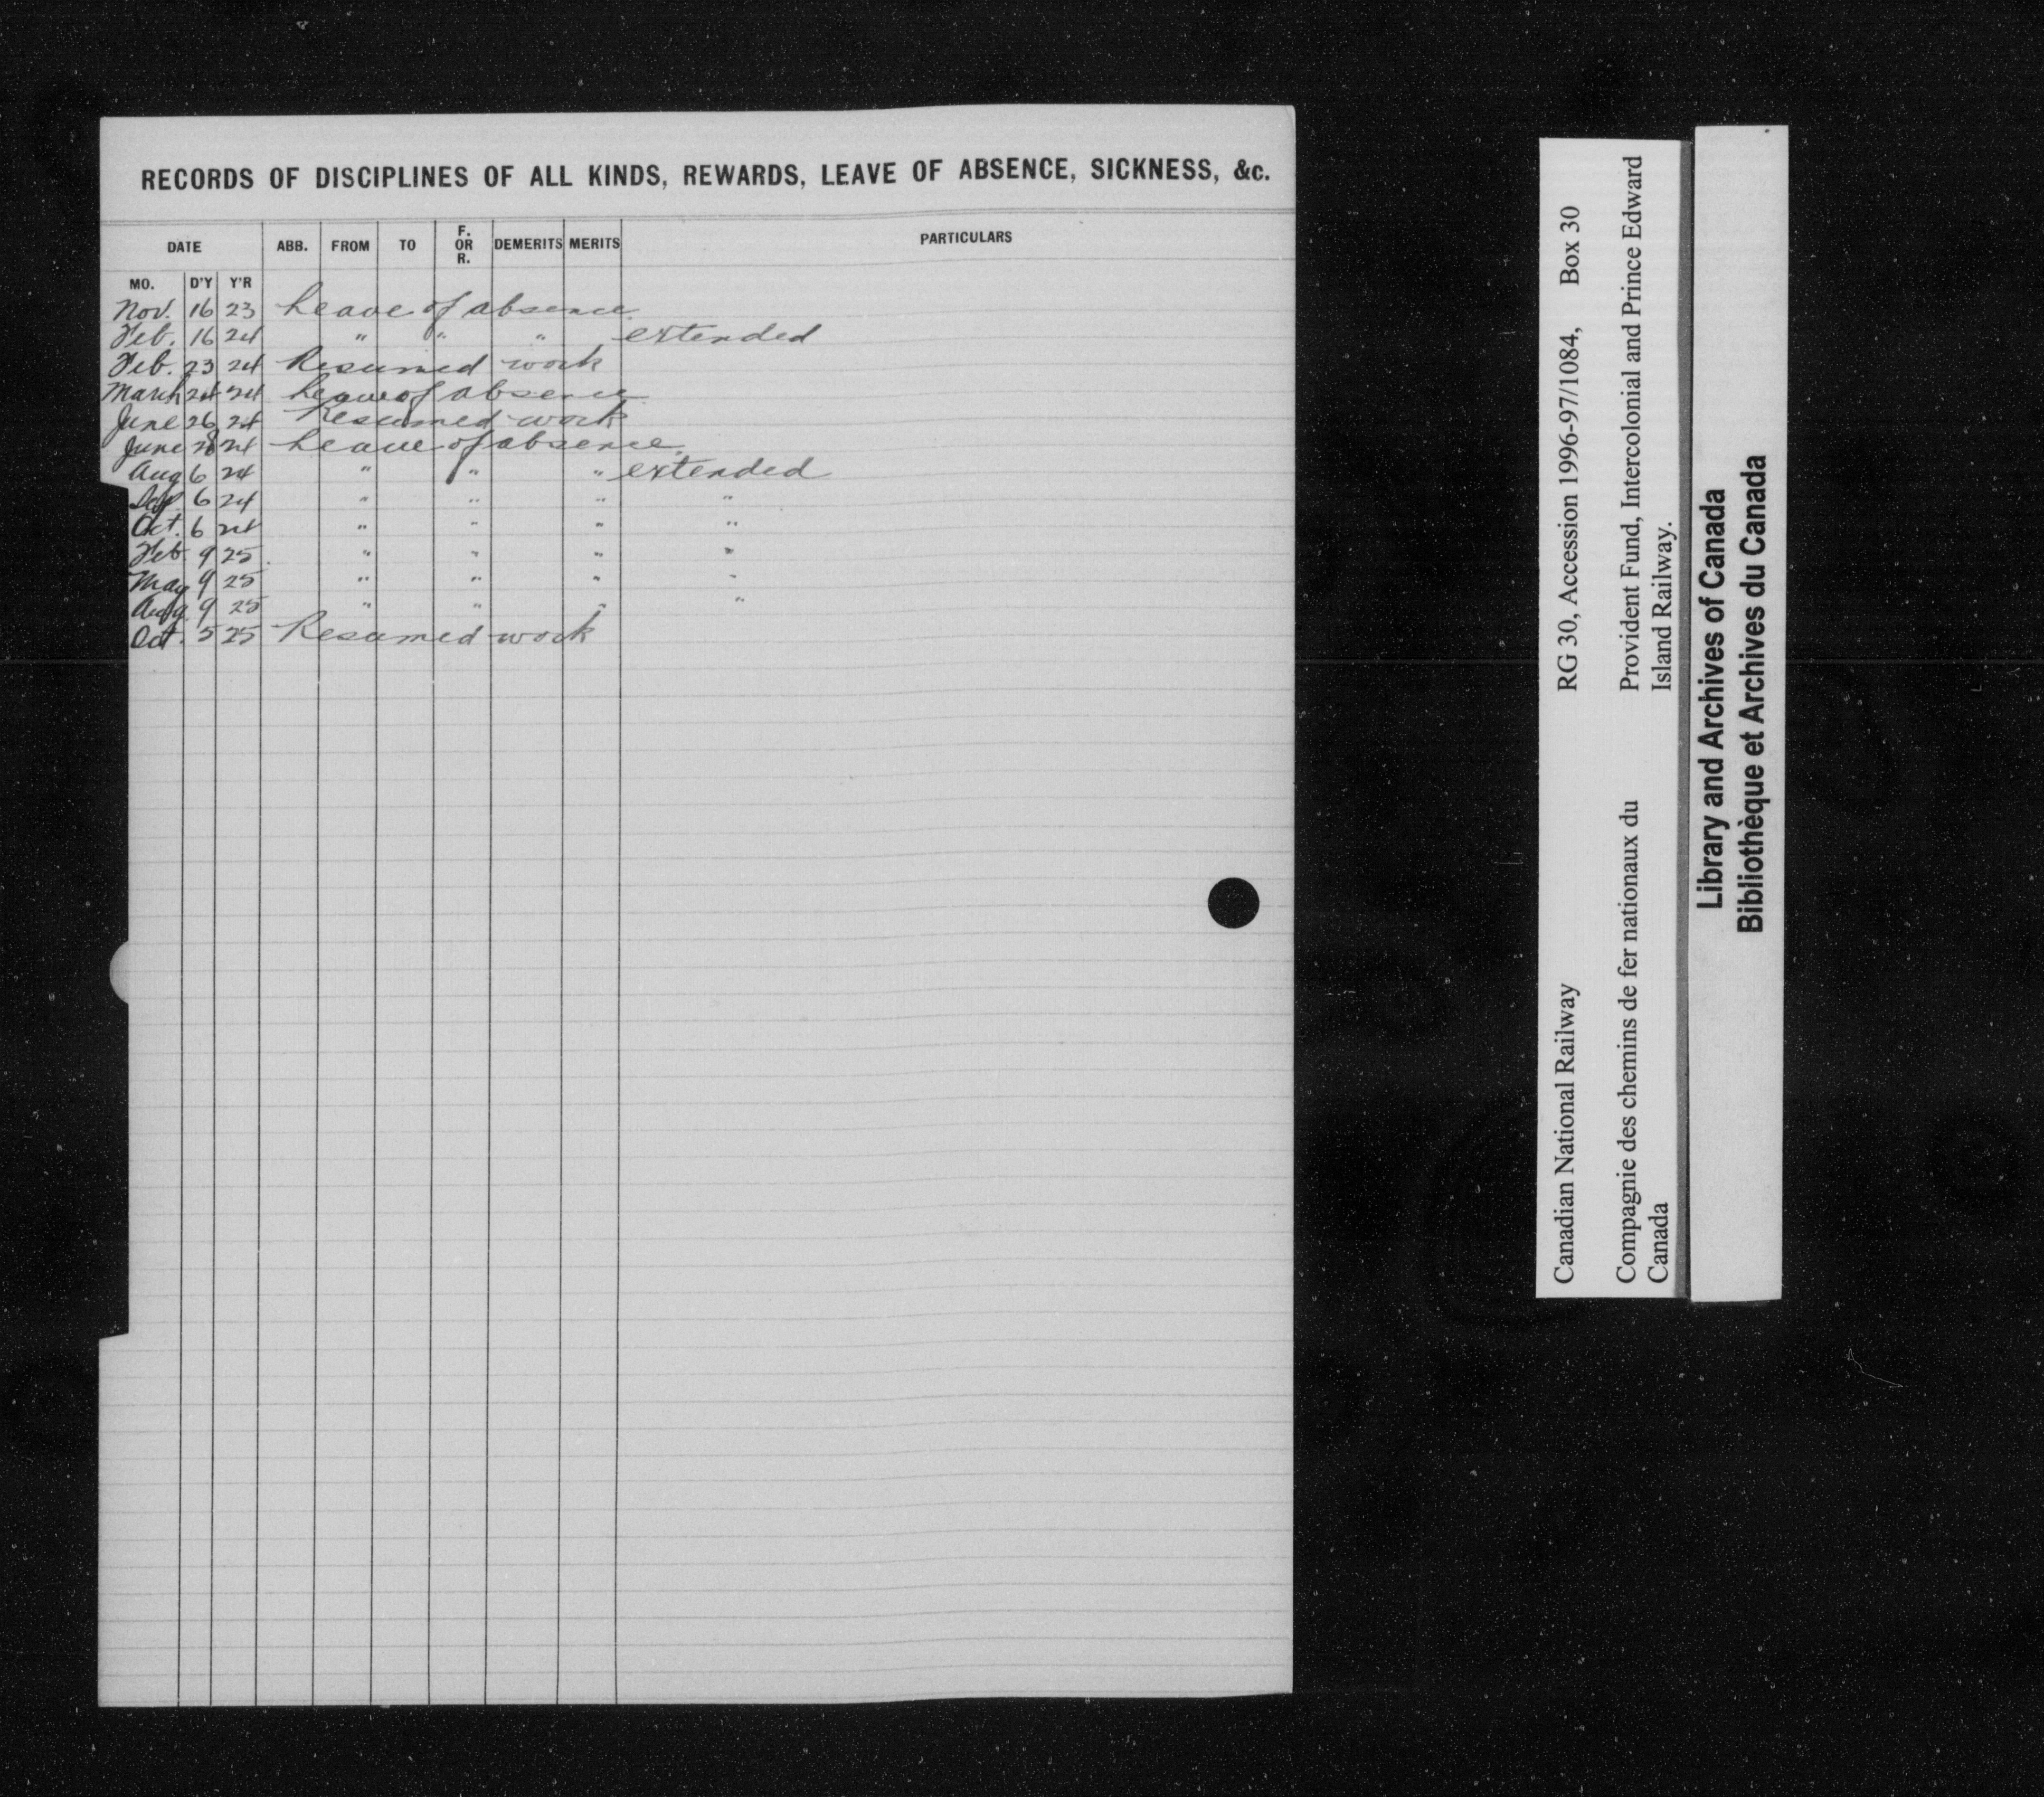 RECORDS OF DISCIPLINES OF ALL KINDS, REWARDS, LEAVE OF ABSENCE, SICKNESS, &c.
DATE ABB. FROM TO F. OR R. DEMERITS MERITS PARTICULARS
MO. D'Y Y'R
Nov. 16 23 Leave of absence
Feb. 16 24 " " " extended
Feb. 23 24 Resumed work
March 24 24 Leave of absence
June 26 24 Resumed work
June 24 Leave of absence
Aug 6 24 " " " extended
Sep 6 24 " " " "
Oct. 6 24 " " " "
Feb. 9 25 " " " "
May 9 25 " " " "
Aug. 9 25 " " " "
Oct. 5 25 Resumed work
Canadian National Railway RG 30, Accession 1996-97/1084, Box 30
Compagnie des chemins de fer nationaux du Provident Fund, Intercolonial and Prince Edward
Canada Island Railway.
Library and Archives of Canada
Bibliothèque et Archives du Canada